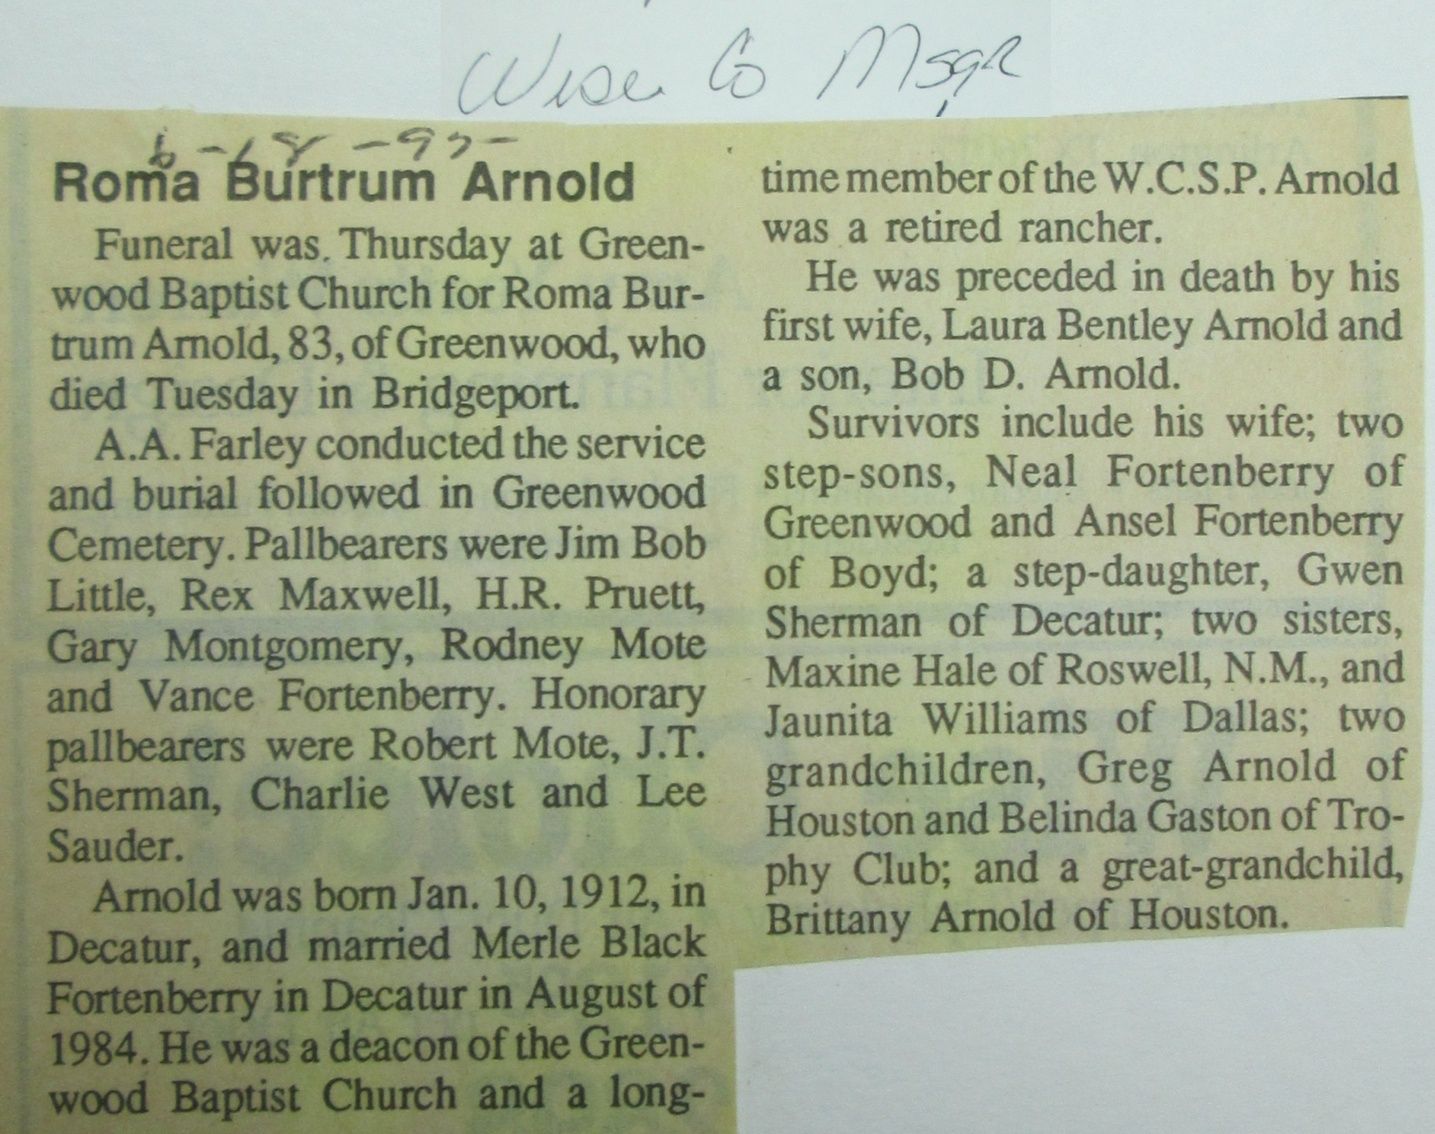 Wise Co Msgr
6-18-95
Roma Burtrum Arnold
Funeral was Thursday at Green-
wood Baptist Church for Roma Bur-
trum Arnold, 83, of Greenwood, who
died Tuesday in Bridgeport.
A.A. Farley conducted the service
and burial followed in Greenwood
Cemetery. Pallbearers were Jim Bob
Little, Rex Maxwell, H.R. Pruett,
Gary Montgomery, Rodney Mote
and Vance Fortenberry. Honorary
pallbearers were Robert Mote, J.T.
Sherman, Charlie West and Lee
Sauder.
Arnold was born Jan. 10, 1912, in
Decatur, and married Merle Black
Fortenberry in Decatur in August of
1984. He was a deacon of the Green-
wood Baptist Church and a long-
time member of the W.C.S.P. Arnold
was a retired rancher.
He was preceded in death by his
first wife, Laura Bentley Arnold and
a son, Bob D. Arnold.
Survivors include his wife; two
step-sons, Neal Fortenberry of
Greenwood and Ansel Fortenberry
of Boyd; a step-daughter, Gwen
Sherman of Decatur; two sisters,
Maxine Hale of Roswell, N.M., and
Jaunita Williams of Dallas; two
grandchildren, Greg Arnold of
Houston and Belinda Gaston of Tro-
phy Club; and a great-grandchild,
Brittany Arnold of Houston.